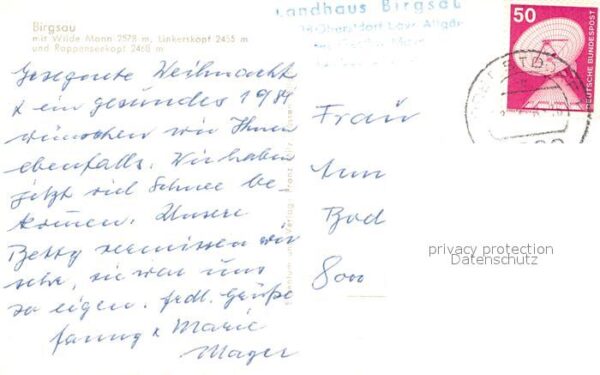 Birgsau
mit Wilde Mann 2578 m, Linkerskopf 2455 m
und Rappenseekopf 2468 m
Landhaus Birgsau
Oberstdorf
50
DEUTSCHE BUNDESPOST
Gesegnete Weihnacht
& ein gesundes 1984
wünschen wir Ihnen
ebenfalls. Wir haben
jetzt viel Schnee be-
kommen. Unsere
Betty vermissen wir
sehr, sie war uns
so eigen. frdl. Grüße
Fanny & Marie
Mayer
Frau
Bad
privacy protection
Datenschutz